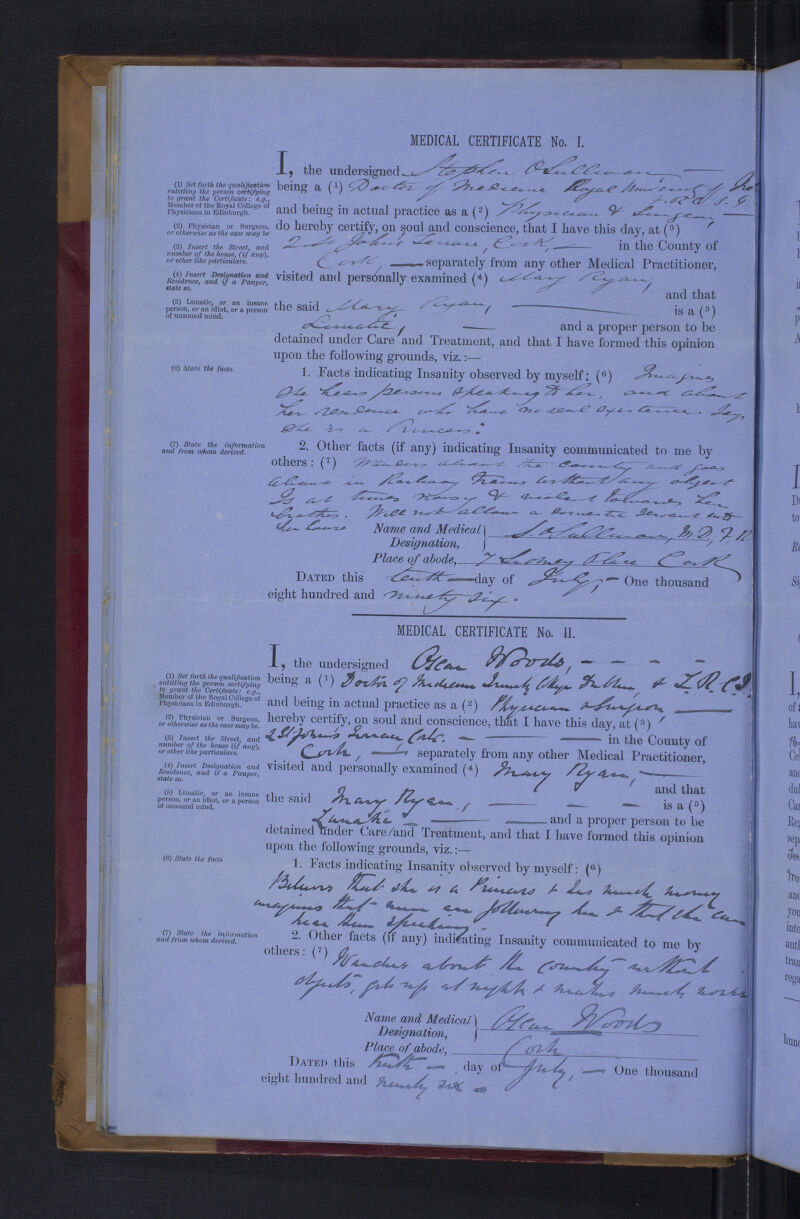 MEDICAL CERTIFICATE No. I.
I, the undersigned Stephen O'Sullivan —
(1) Set forth the qualification entitling the person certifying to grant the Certificate: e.g., Member of the Royal College of Physicians in Edinburgh.
being a (1) Doctor of Medicine Royal University of Ire
F.R.C.S.
and being in actual practice as a (2) Physician & Surgeon, —
(2) Physician or Surgeon, or otherwise as the case may be
do hereby certify, on soul and conscience, that I have this day, at (3)
(3) Insert the Street, and number of the house, (if any), or other like particulars.
2 St Johns Terrace, Cork, — in the County of
Cork, — separately from any other Medical Practitioner,
(4) Insert Designation and Residence, and if a Pauper, state so.
visited and personally examined (4) Mary Ryan,
and that
(5) Lunatic, or an insane person, or an idiot, or a person of unsound mind.
the said Mary Ryan, — is a (5)
Lunatic, — and a proper person to be
detained under Care and Treatment, and that I have formed this opinion
upon the following grounds, viz.:—
(6) State the facts.
1. Facts indicating Insanity observed by myself: (6) Imagines
She hears persons speaking to her, and about
her residence who have no real existence. Says
She is a Princess.
(7) State the information and from whom derived.
2. Other facts (if any) indicating Insanity communicated to me by
others: (7) Wanders about the country and goes
about in Railway trains without any object
Is at times noisy & violent towards her
brother. Will not allow a domestic servant into
her house
Name and Medical Designation, S O'Sullivan, M.D., F.R
Place of abode, 7 Sidney Place Cork
DATED this tenth — day of July, — One thousand
eight hundred and ninety six.
MEDICAL CERTIFICATE No. II.
I, the undersigned Oscar Woods, — — — —
(1) Set forth the qualification entitling the person certifying to grant the Certificate: e.g., Member of the Royal College of Physicians in Edinburgh.
being a (1) Doctor of Medicine Trinity College Dublin, & L.R.C.S.
and being in actual practice as a (2) Physician & Surgeon —
(2) Physician or Surgeon, or otherwise as the case may be.
hereby certify, on soul and conscience, that I have this day, at (3)
(3) Insert the Street, and number of the house (if any), or other like particulars.
2 St John's Terrace Cork. — — in the County of
Cork, — separately from any other Medical Practitioner,
(4) Insert Designation and Residence, and if a Pauper, state so.
visited and personally examined (4) Mary Ryan, —
and that
(5) Lunatic, or an insane person, or an idiot, or a person of unsound mind.
the said Mary Ryan, — — — is a (5)
Lunatic — — and a proper person to be
detained under Care and Treatment, and that I have formed this opinion
upon the following grounds, viz.:—
(6) State the facts
1. Facts indicating Insanity observed by myself: (6)
Believes that she is a Princess & has much money
imagines that men are following her & that she can
hear them speaking.
(7) State the information and from whom derived.
2. Other facts (if any) indicating Insanity communicated to me by
others: (7) Wanders about the country without
objects, gets up at night & makes much noise
Name and Medical Designation, Oscar Woods
Place of abode, Cork
DATED this tenth — day of July, — One thousand
eight hundred and ninety six